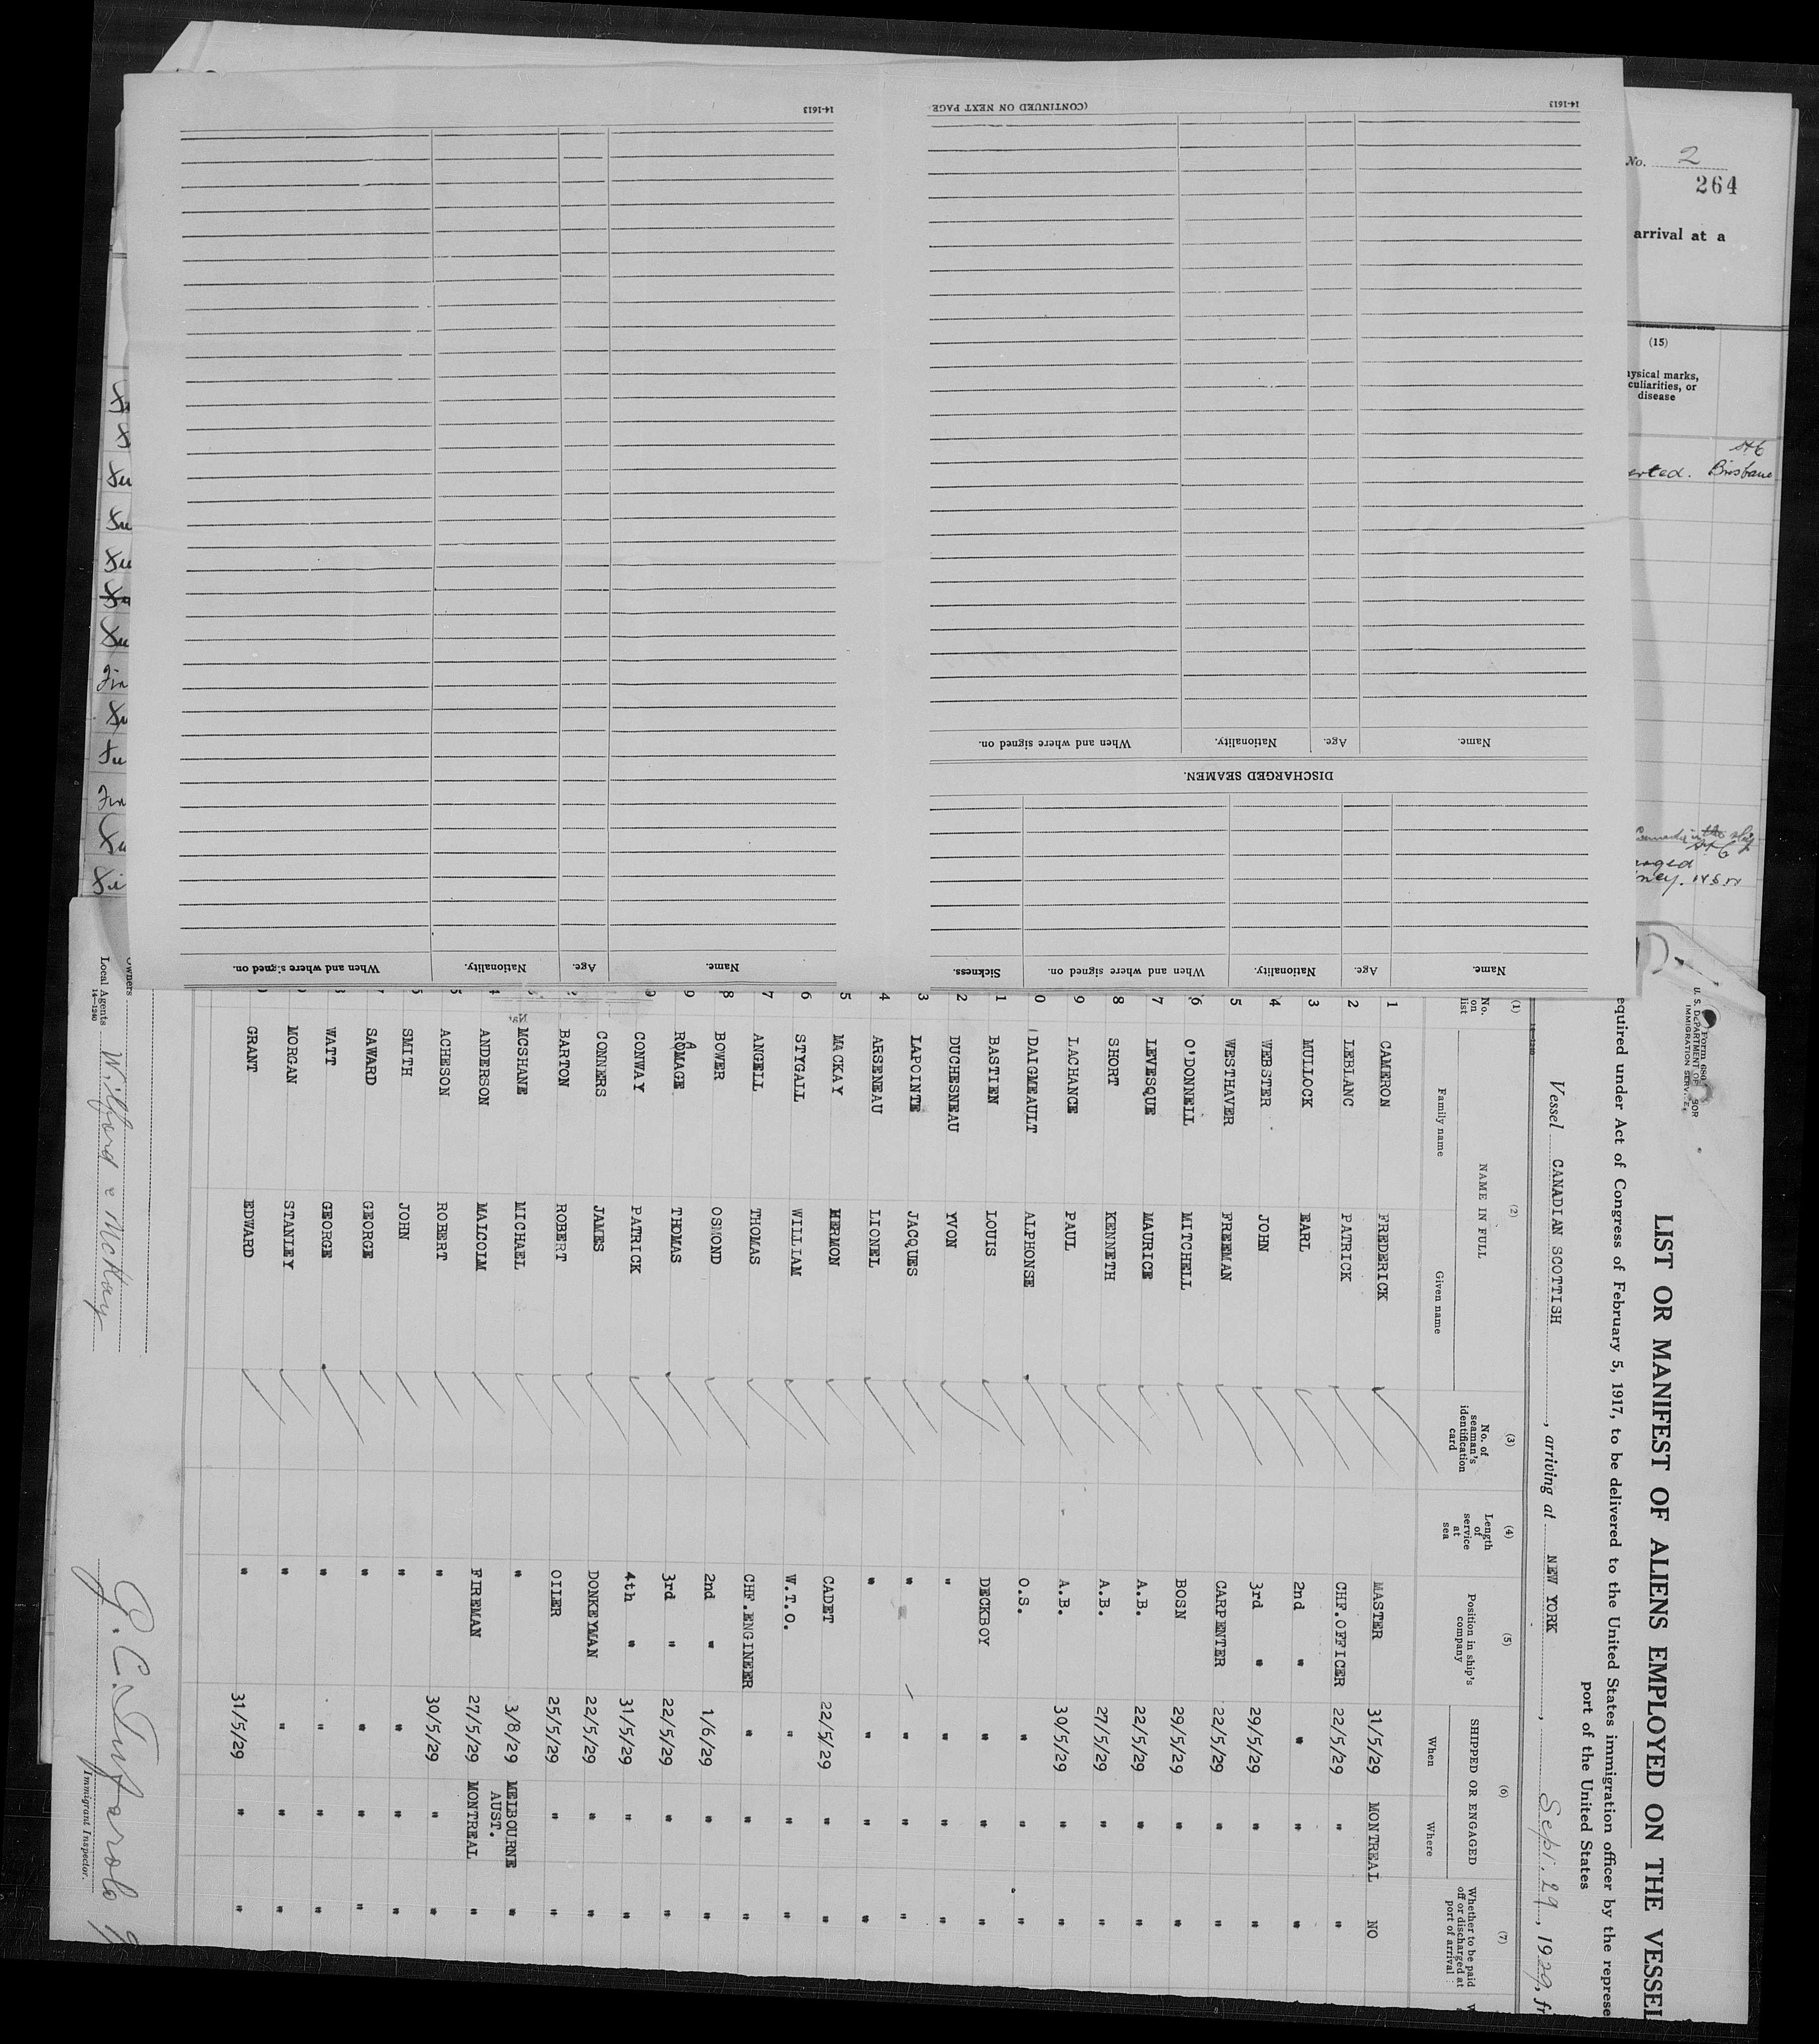 14-1613
(CONTINUED ON NEXT PAGE
14-1613
DISCHARGED SEAMEN.
Name. Age. Nationality. When and where signed on.
Name. Age. Nationality. When and where signed on. Sickness.
Name. Age. Nationality. When and where signed on.
No. 2
264
arrival at a
(15)
ysical marks,
culiarities, or
disease
erted. Brisbane
Form 680
U. S. DEPARTMENT OF
IMMIGRATION SERVICE
LIST OR MANIFEST OF ALIENS EMPLOYED ON THE VESSEL
equired under Act of Congress of February 5, 1917, to be delivered to the United States immigration officer by the represe
port of the United States
Vessel CANADIAN SCOTTISH, arriving at NEW YORK, Sept. 29, 1929, fr
(1) (2) (3) (4) (5) (6) (7)
No. on list
NAME IN FULL
Family name Given name
No. of seaman's identification card
Length of service at sea
Position in ship's company
SHIPPED OR ENGAGED
When Where
Whether to be paid off or discharged at port of arrival
1 CAMERON FREDERICK MASTER 31/5/29 MONTREAL NO
2 LEBLANC PATRICK CHF.OFFICER 22/5/29 " "
3 MULLOCK EARL 2nd " " " "
4 WEBSTER JOHN 3rd " 29/5/29 " "
5 WESTHAVER FREEMAN CARPENTER 22/5/29 " "
6 O'DONNELL MITCHELL BOSN 29/5/29 " "
7 LEVESQUE MAURICE A.B. 22/5/29 " "
8 SHORT KENNETH A.B. 27/5/29 " "
9 LACHANCE PAUL A.B. 30/5/29 " "
0 DAIGMEAULT ALPHONSE O.S. " " "
1 BASTIEN LOUIS DECKBOY " " "
2 DUCHESNEAU YVON " " " "
3 LAPOINTE JACQUES " " " "
4 ARSENEAU LIONEL " " " "
5 McCKAY MERMON CADET 22/5/29 " "
6 STYGALL WILLIAM W.T.O. " " "
7 ANGELL THOMAS CHF.ENGINEER " " "
8 BOWER OSMOND 2nd " 1/6/29 " "
9 RAMAGE THOMAS 3rd " 22/5/29 " "
CONWAY PATRICK 4th " 31/5/29 " "
CONNERS JAMES DONKEYMAN 22/5/29 " "
BARTON ROBERT OILER 25/5/29 " "
MCSHANE MICHAEL " 3/8/29 MELBOURNE AUST. "
ANDERSON MALCOLM FIREMAN 27/5/29 MONTREAL "
ACHESON ROBERT " 30/5/29 " "
SMITH JOHN " " " "
SAWARD GEORGE " " " "
WATT GEORGE " " " "
MORGAN STANLEY " " " "
GRANT EDWARD " 31/5/29 " "
Owners
Local Agents Wilford & McKay
14-1240
Immigrant Inspector.